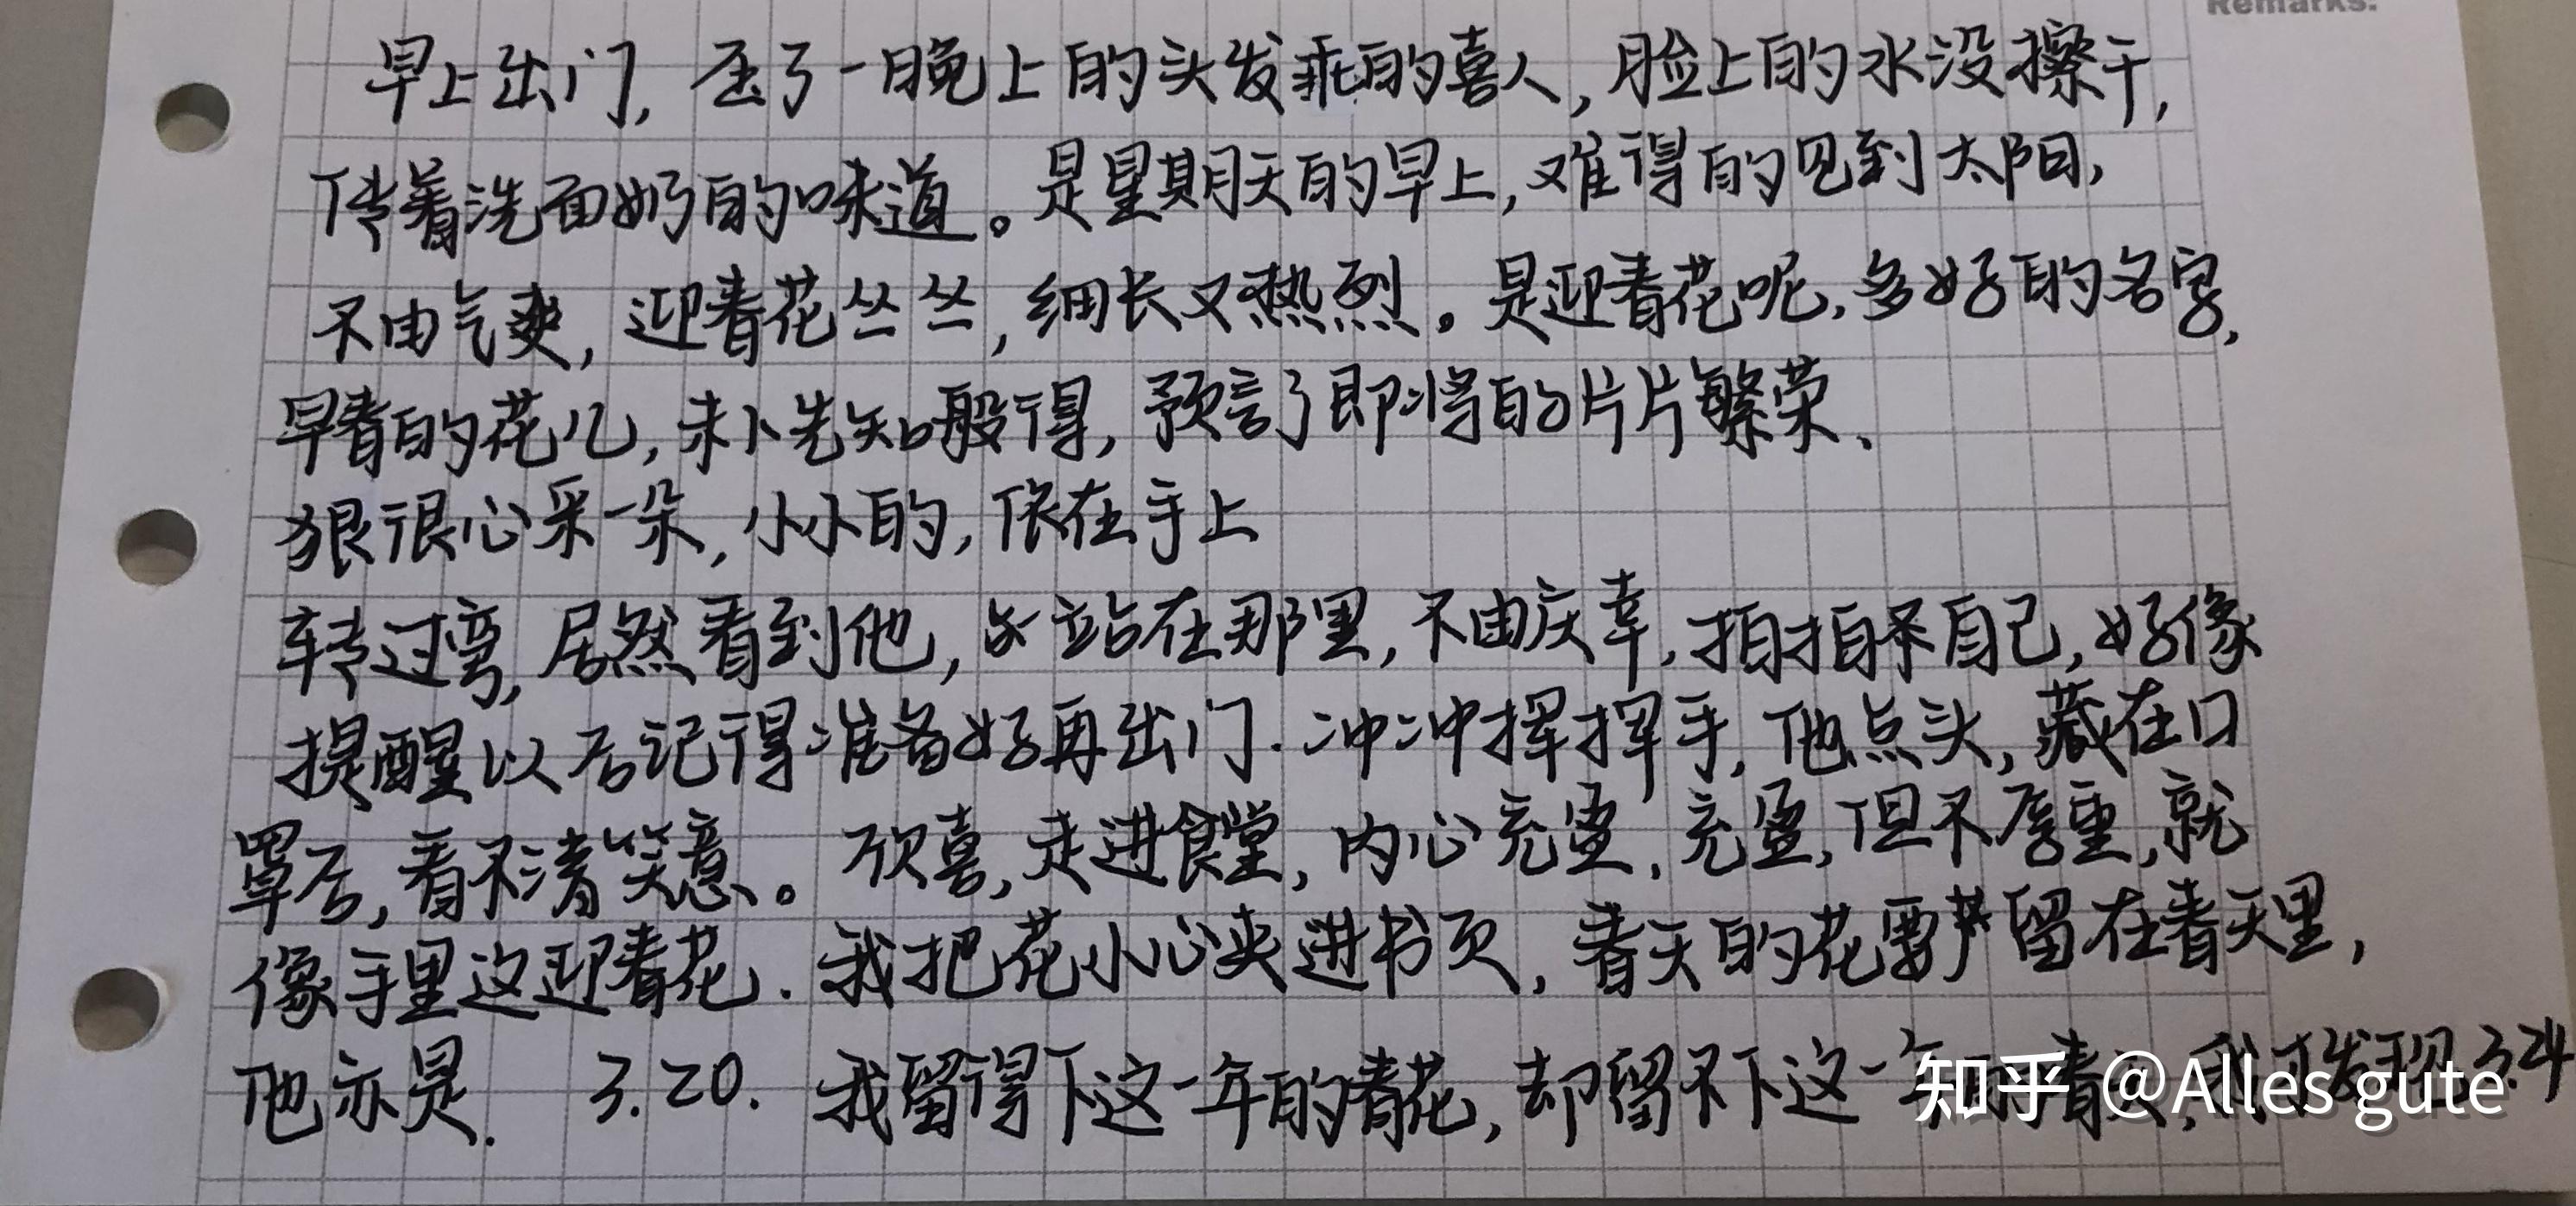 Remarks:
早上出门，压了一晚上的头发乖的喜人，脸上的水没擦干，
传着洗面奶的味道。是星期天的早上，难得的见到太阳，
不由气爽，迎春花丛丛，细长又热烈。是迎春花呢，多好的名字，
早春的花儿，未卜先知般得，预言了即将的片片繁荣、
狠狠心采一朵，小小的，依在手上
转过弯，居然看到他，站在那里，不由庆幸，拍拍自己，好像
提醒以后记得准备好再出门．冲冲挥挥手，他点头，藏在口
罩后，看不清笑意。欣喜，走进食堂，内心充盈，充盈，但不厚重，就
像手里这迎春花．我把花小心夹进书页，春天的花要留在春天里，
他亦是．3.20．我留得下这一年的春花，却留不下这一年的春，我才发现3.24
知乎 @Alles gute